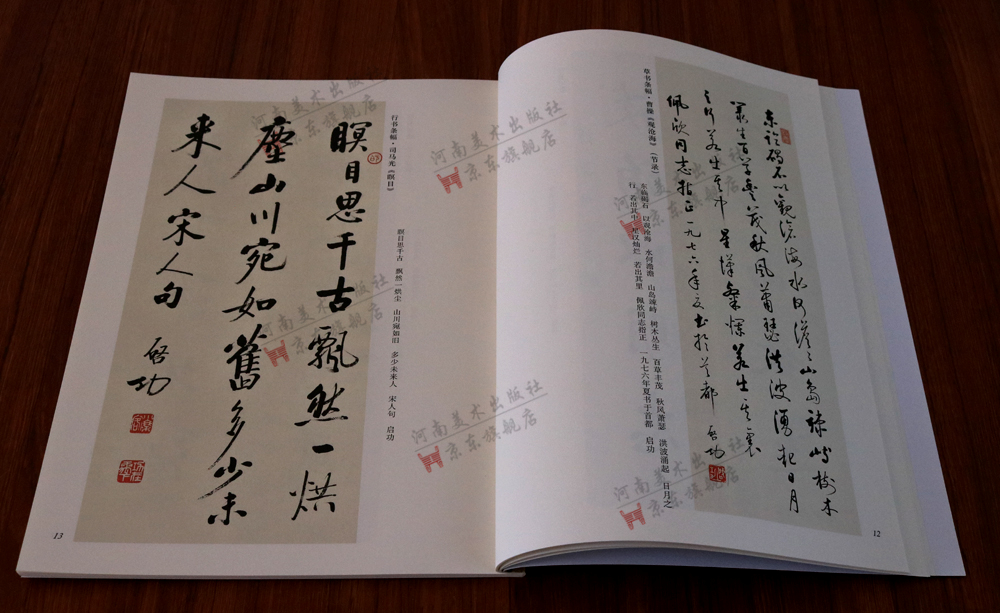 東臨碣石以觀滄海水何澹〻山島竦峙樹木
叢生百草豐茂秋風蕭瑟洪波湧起日月
之行若出其中星漢粲爛若出其裏
佩欣同志指正一九七六年夏書於首都 啓功
草书条幅·曹操《观沧海》（节录）
东临碣石 以观沧海 水何澹澹 山岛竦峙 树木丛生 百草丰茂 秋风萧瑟 洪波涌起 日月之
行 若出其中 星汉灿烂 若出其里 佩欣同志指正 一九七六年夏书于首都 启功
12
行书条幅·司马光《瞑目》
瞑目思千古 飘然一烘尘 山川宛如旧 多少未来人 宋人句 启功
瞑目思千古飄然一烘
塵山川宛如舊多少未
来人宋人句 啓功
13
河南美术出版社
京东旗舰店
河南美术出版社
京东旗舰店
河南美术出版社
京东旗舰店
河南美术出版社
京东旗舰店
河南美术出版社
京东旗舰店
河南美术出版社
京东旗舰店